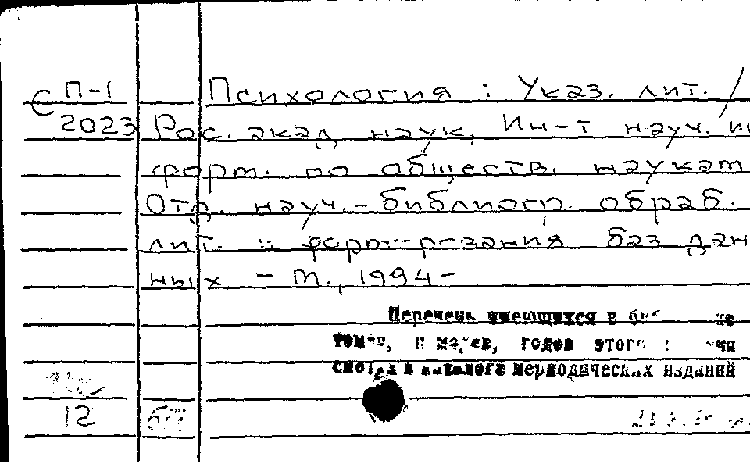 С П-1 Психология : Указ. лит. /
2023 Рос. акад. наук, Ин-т науч. ин
форм. по обществ. наукам
Отд. науч.-библиогр. обраб.
лит. и формирования баз дан
ных - М., 1994-
Перечень имеющихся в
томов, годов этого
смотри в каталоге периодических изданий
12 б/т